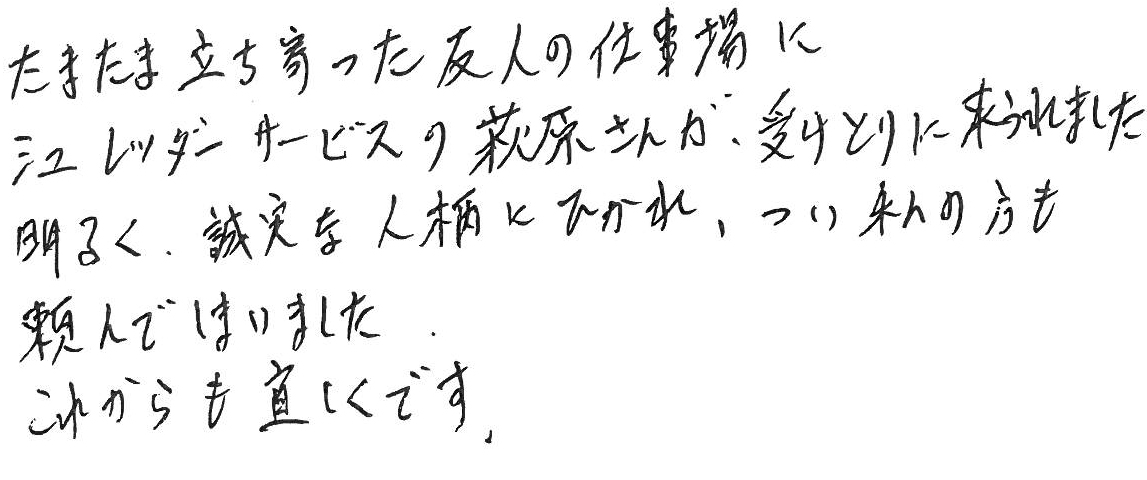 たまたま立ち寄った友人の仕事場に
シュレッダーサービスの萩原さんが、受けとりに来られました
明るく、誠実な人柄にひかれ、つい私の方も
頼んでしまいました.
これからも宜しくです.